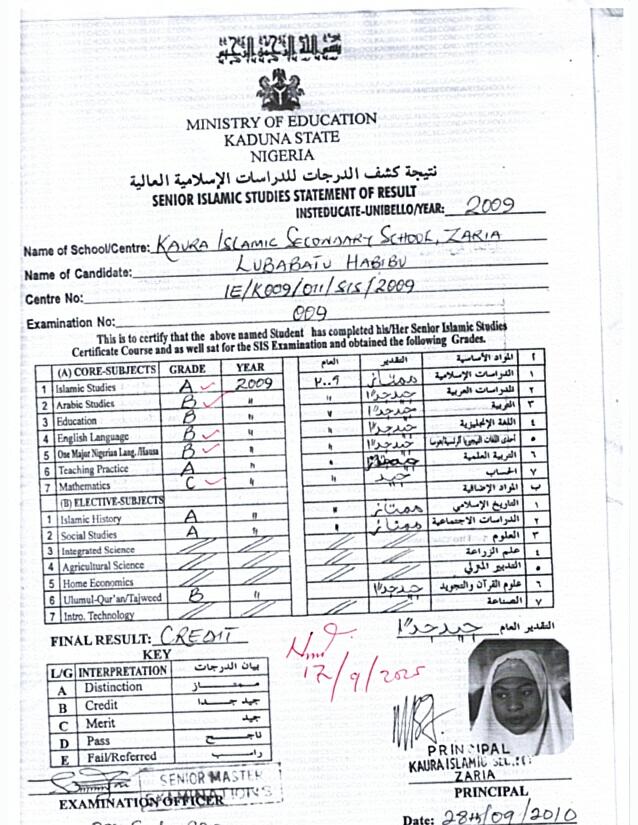 بسم الله الرحمن الرحيم
MINISTRY OF EDUCATION
KADUNA STATE
NIGERIA
نتيجة كشف الدرجات للدراسات الإسلامية العالية
SENIOR ISLAMIC STUDIES STATEMENT OF RESULT
INSTEDUCATE-UNIBELLO/YEAR: 2009
Name of School/Centre: KAURA ISLAMIC SECONDARY SCHOOL, ZARIA
Name of Candidate: LUBABATU HABIBU
Centre No: IE/K009/011/SIS/2009
Examination No: 009
This is to certify that the above named Student has completed his/Her Senior Islamic Studies
Certificate Course and as well sat for the SIS Examination and obtained the following Grades.
(A) CORE-SUBJECTS GRADE YEAR العام التقدير المواد الأساسية أ
1 Islamic Studies A 2009 ٢٠٠٩ ممتاز الدراسات الإسلامية ١
2 Arabic Studies B " " جيد جدا الدراسات العربية ٢
3 Education B " " جيد جدا التربية ٣
4 English Language B " " جيد جدا اللغة الإنجليزية ٤
5 One Major Nigerian Lang./Hausa B " " جيد جدا ٥
6 Teaching Practice A " " التربية العلمية ٦
7 Mathematics C " " جيد الحساب ٧
(B) ELECTIVE-SUBJECTS المواد الإضافية ب
1 Islamic History A " " ممتاز التاريخ الإسلامي ١
2 Social Studies A " " ممتاز الدراسات الاجتماعية ٢
3 Integrated Science العلوم ٣
4 Agricultural Science علم الزراعة ٤
5 Home Economics التدبير المنزلي ٥
6 Ulumul-Qur'an/Tajweed B " جيد جدا علوم القرآن والتجويد ٦
7 Intro. Technology الصناعة ٧
FINAL RESULT: CREDIT جيد جدا التقدير العام
KEY
L/G INTERPRETATION بيان الدرجات
A Distinction ممتاز
B Credit جيد جدا
C Merit جيد
D Pass ناجح
E Fail/Referred راسب
17/9/2025
PRINCIPAL
KAURA ISLAMIC
ZARIA
SENIOR MASTER
EXAMINATIONS
EXAMINATION OFFICER
PRINCIPAL
Date: 28th/09/2010